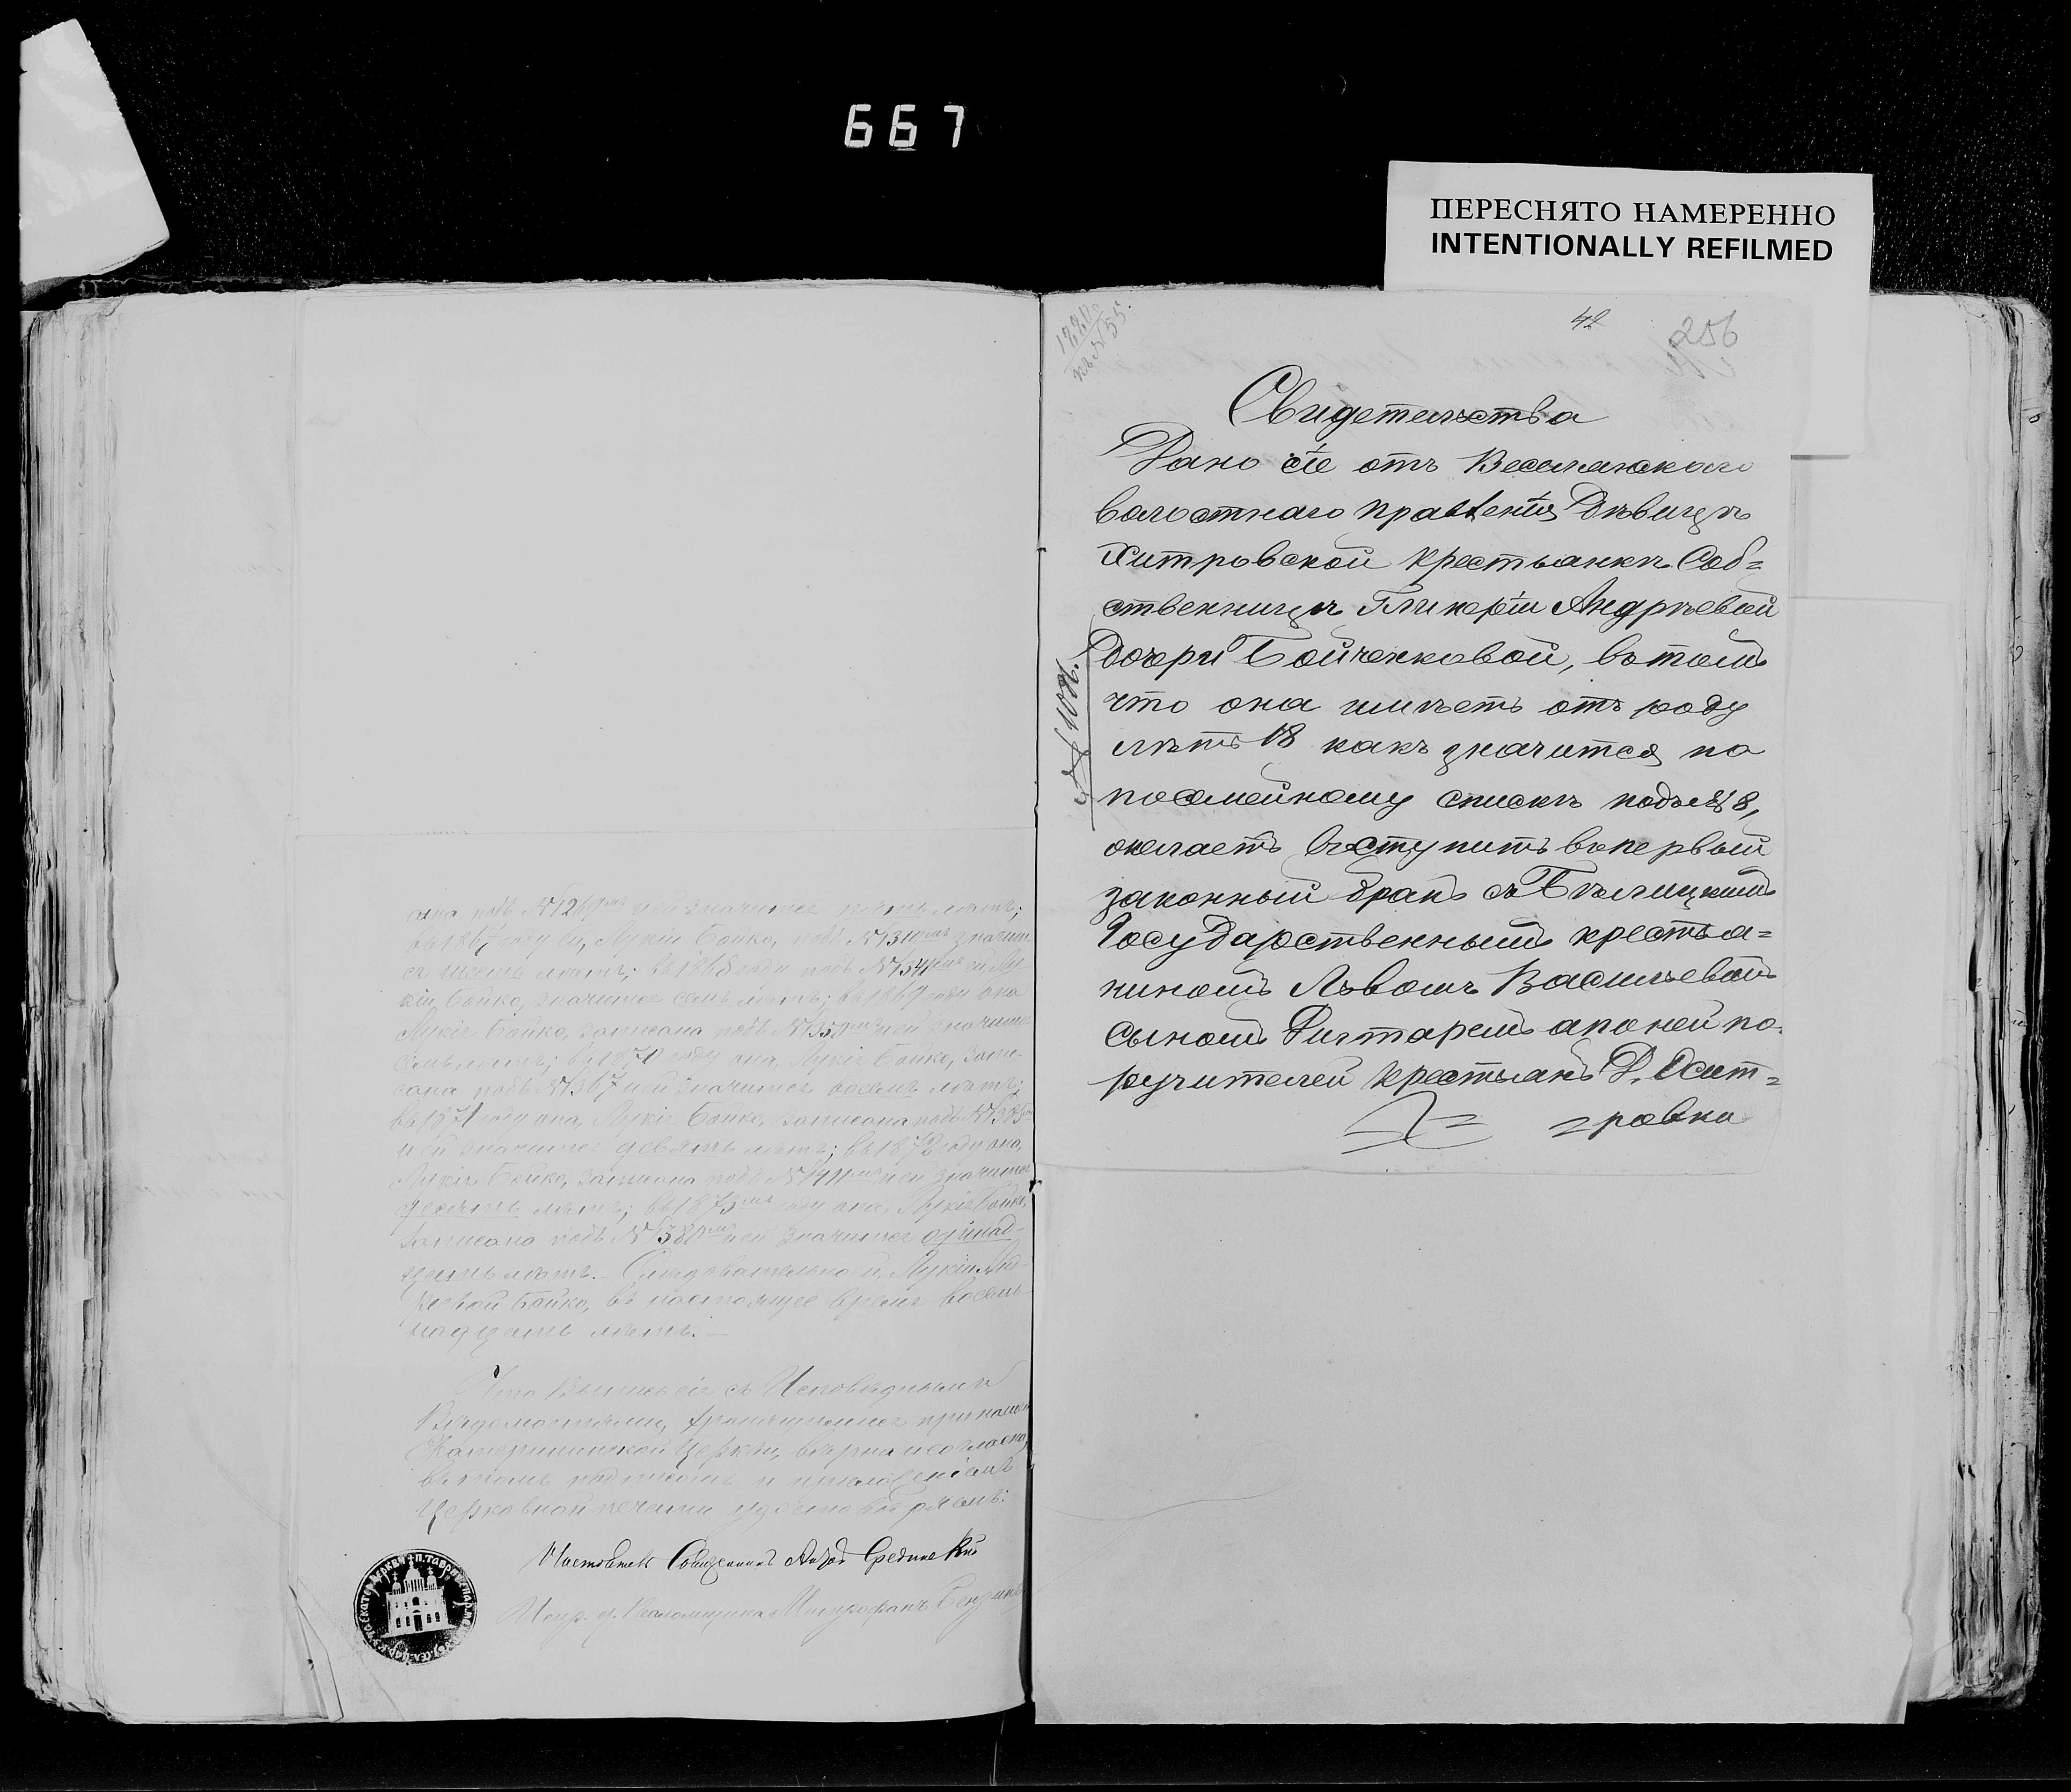 667
ПЕРЕСНЯТО НАМЕРЕННО
INTENTIONALLY REFILMED
она подъ №1269мъ и ей значится пять лѣтъ;
въ 1867 году ей, Лукіи Бойко, подъ №1310мъ значит-
ся шесть лѣтъ; въ 1868 году подъ №1341мъ ей Лу-
кіи Бойко, значится семь лѣтъ; въ 1869 году она
Лукія Бойко, записана подъ и ей значится
семь лѣтъ; въ 1870 году она, Лукія Бойко, запи-
сана подъ №1367 и ей значится восемь лѣтъ;
въ 1871 году она, Лукія Бойко, записана подъ №1385
и ей значится девять лѣтъ; въ 1872 году она,
Лукія Бойко, записана подъ №1411мъ и ей значится
десять лѣтъ; въ 1873мъ году она, Лукія Бойко,
записана подъ №1380мъ и ей значится одинад-
цать лѣтъ. – Слѣдовательно ей, Лукіи Анд-
реевой Бойко, въ настоящее время восем-
надцать лѣтъ. –
Что выпись сія съ Исповѣдными
Вѣдомостями, хранящимися при нашей
Екатерининской Церкви, вѣрна и согласна,
въ томъ подписомъ и приложеніемъ
Церковной печати удостовѣряемъ:
Настоятель Священникъ
Испр. д. Псаломщика Митрофанъ
42
256
1880
къ №55.
№1098.
Свидетельства
Дано сіе отъ Веселянскаго
волостнаго правленія Дѣвицѣ
Хитровской крестьянкѣ Соб=
ственницѣ Гликеріи Андрѣевой
Дочери Бойченковой, въ томъ
что она имѣетъ отъ роду
лѣтъ 18 какъ значится по
посемейному спискѣ подъ №8,
желаетъ вступить въ первый
законный бракъ съ Бѣлицкимъ
Государственнымъ крестья=
ниномъ Львомъ Васильевымъ
сыномъ Дигтаремъ а по ней по-
ручителей крестьянъ Д. Осит=
=ровка